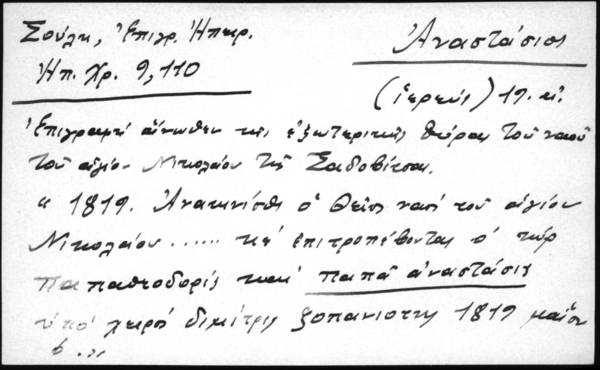 Σούλη, Ἐπιγρ. Ἠπειρ.
Ἠπ. Χρ. 9, 110
Ἀναστάσιος
(ἱερεύς) 19. αἰ.
Ἐπιγραφή ἄνωθεν τῆς ἐξωτερικῆς θύρας τοῦ ναοῦ
τοῦ ἁγίου Νικολάου τῆς Σαδοβίτσας.
" 1819. Ἀνακινίσθη ὁ θεῖος ναός τοῦ ἁγίου
Νικολάου ...... κέ ἐπιτροπέβοντας ὁ κύρ
παπαθεοδορίς καί παπᾶ ἀναστάσις
ὑπό χειρός διμίτρις ξοπανιοτις 1819 μαΐου
6 . "